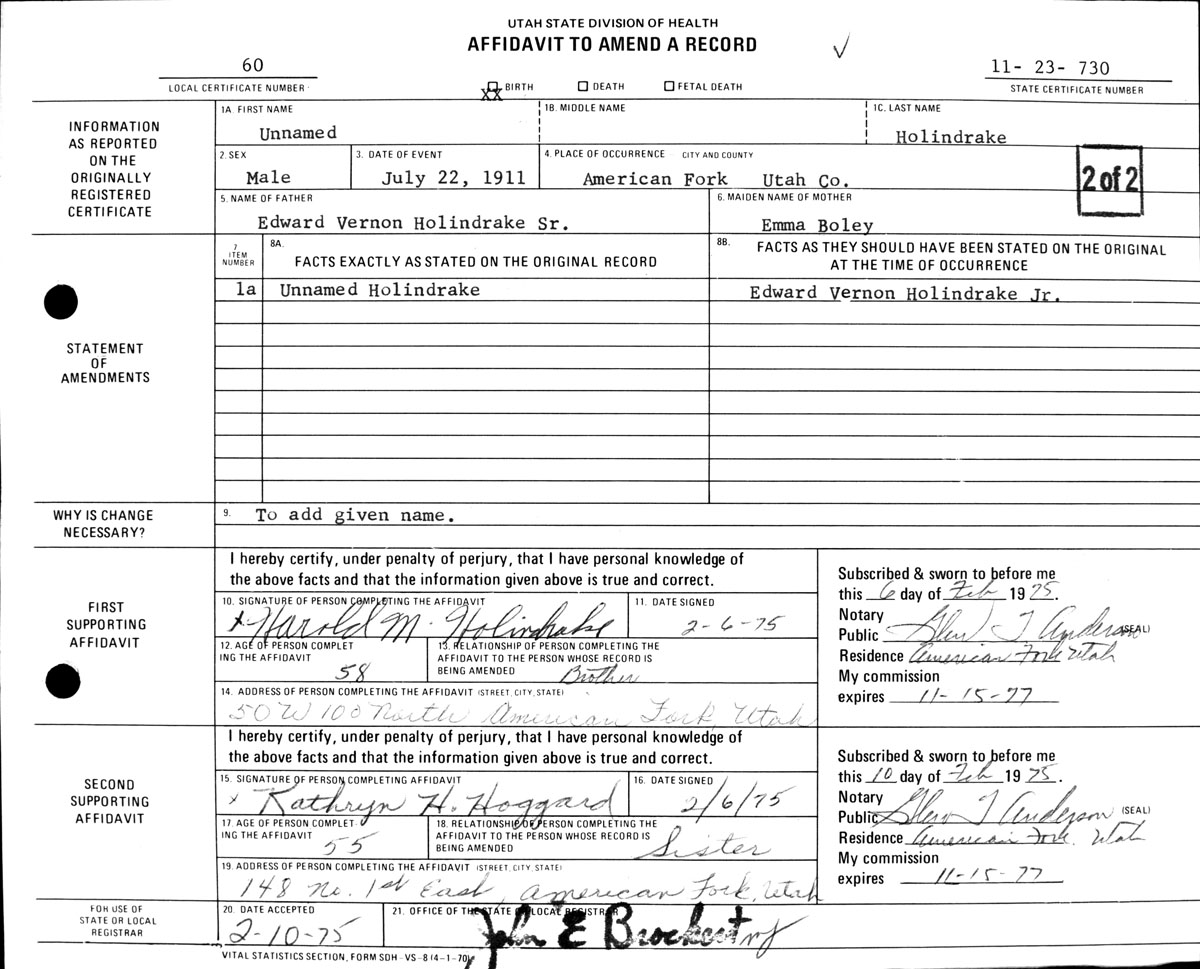 UTAH STATE DIVISION OF HEALTH
AFFIDAVIT TO AMEND A RECORD ✓
60
LOCAL CERTIFICATE NUMBER
XX BIRTH ☐ DEATH ☐ FETAL DEATH
11- 23- 730
STATE CERTIFICATE NUMBER
INFORMATION
AS REPORTED
ON THE
ORIGINALLY
REGISTERED
CERTIFICATE
1A. FIRST NAME
Unnamed
1B. MIDDLE NAME
1C. LAST NAME
Holindrake
2. SEX
Male
3. DATE OF EVENT
July 22, 1911
4. PLACE OF OCCURRENCE CITY AND COUNTY
American Fork Utah Co.
2 of 2
5. NAME OF FATHER
Edward Vernon Holindrake Sr.
6. MAIDEN NAME OF MOTHER
Emma Boley
STATEMENT
OF
AMENDMENTS
7
ITEM
NUMBER
8A.
FACTS EXACTLY AS STATED ON THE ORIGINAL RECORD
8B. FACTS AS THEY SHOULD HAVE BEEN STATED ON THE ORIGINAL
AT THE TIME OF OCCURRENCE
1a Unnamed Holindrake Edward Vernon Holindrake Jr.
WHY IS CHANGE
NECESSARY?
9. To add given name.
FIRST
SUPPORTING
AFFIDAVIT
I hereby certify, under penalty of perjury, that I have personal knowledge of
the above facts and that the information given above is true and correct.
10. SIGNATURE OF PERSON COMPLETING THE AFFIDAVIT
x Harold M. Holindrake
11. DATE SIGNED
2-6-75
12. AGE OF PERSON COMPLET
ING THE AFFIDAVIT
58
13. RELATIONSHIP OF PERSON COMPLETING THE
AFFIDAVIT TO THE PERSON WHOSE RECORD IS
BEING AMENDED Brother
14. ADDRESS OF PERSON COMPLETING THE AFFIDAVIT (STREET, CITY, STATE)
50 W 100 North American Fork, Utah
Subscribed & sworn to before me
this 6 day of Feb 1975.
Notary
Public Glen T Anderson (SEAL)
Residence American Fork Utah
My commission
expires 11-15-77
SECOND
SUPPORTING
AFFIDAVIT
I hereby certify, under penalty of perjury, that I have personal knowledge of
the above facts and that the information given above is true and correct.
15. SIGNATURE OF PERSON COMPLETING AFFIDAVIT
x Kathryn H. Hoggard
16. DATE SIGNED
2/6/75
17. AGE OF PERSON COMPLET
ING THE AFFIDAVIT
55
18. RELATIONSHIP OF PERSON COMPLETING THE
AFFIDAVIT TO THE PERSON WHOSE RECORD IS
BEING AMENDED Sister
19. ADDRESS OF PERSON COMPLETING THE AFFIDAVIT (STREET, CITY, STATE)
148 No. 1st East, American Fork, Utah
Subscribed & sworn to before me
this 10 day of Feb 1975.
Notary
Public Glen T Anderson (SEAL)
Residence American Fork, Utah
My commission
expires 11-15-77
FOR USE OF
STATE OR LOCAL
REGISTRAR
20. DATE ACCEPTED
2-10-75
21. OFFICE OF THE STATE OR LOCAL REGISTRAR
John E Brockert
VITAL STATISTICS SECTION, FORM SDH-VS-8 (4-1-70)